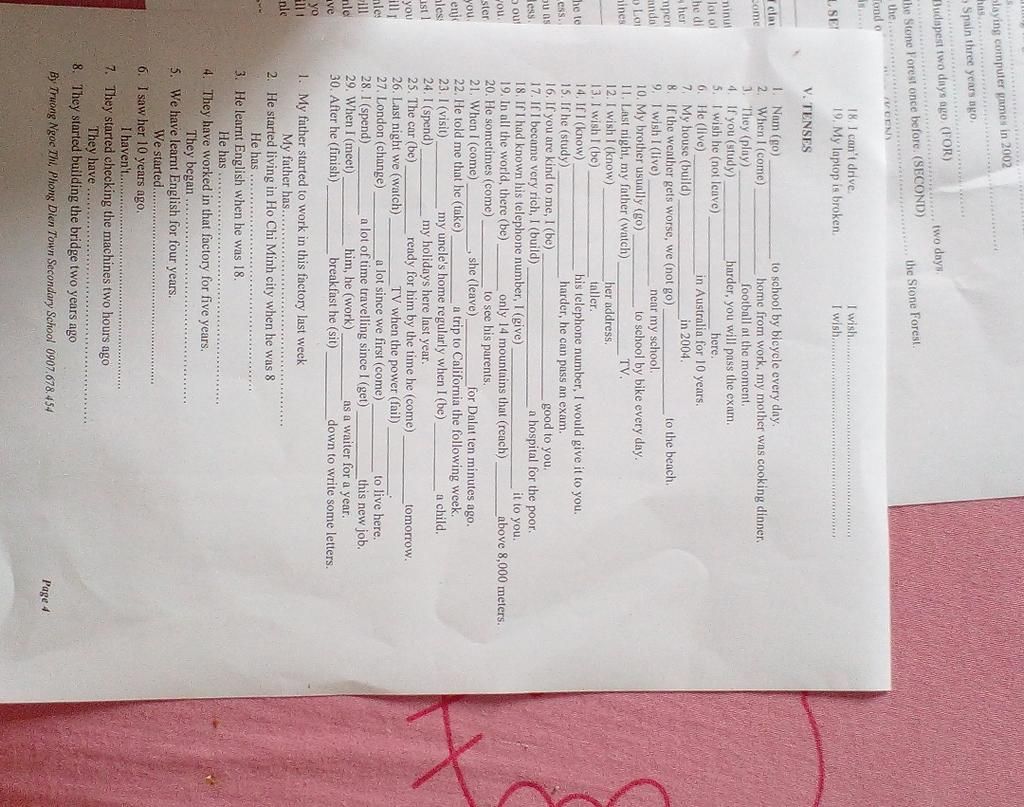 18. I can't drive. I wish
19. My laptop is broken. I wish
V. TENSES
1. Nam (go) ________ to school by bicycle every day.
2. When I (come) ________ home from work, my mother was cooking dinner.
3. They (play) ________ football at the moment.
4. If you (study) ________ harder, you will pass the exam.
5. I wish he (not leave) ________ here.
6. He (live) ________ in Australia for 10 years.
7. My house (build) ________ in 2004.
8. If the weather gets worse, we (not go) ________ to the beach.
9. I wish I (live) ________ near my school.
10. My brother usually (go) ________ to school by bike every day.
11. Last night, my father (watch) ________ TV.
12. I wish I (know) ________ her address.
13. I wish I (be) ________ taller.
14. If I (know) ________ his telephone number, I would give it to you.
15. If he (study) ________ harder, he can pass an exam.
16. If you are kind to me, I (be) ________ good to you.
17. If I became very rich, I (build) ________ a hospital for the poor.
18. If I had known his telephone number, I (give) ________ it to you.
19. In all the world, there (be) ________ only 14 mountains that (reach) ________ above 8,000 meters.
20. He sometimes (come) ________ to see his parents.
21. When I (come) ________, she (leave) ________ for Dalat ten minutes ago.
22. He told me that he (take) ________ a trip to California the following week.
23. I (visit) ________ my uncle's home regularly when I (be) ________ a child.
24. I (spend) ________ my holidays here last year.
25. The car (be) ________ ready for him by the time he (come) ________ tomorrow.
26. Last night we (watch) ________ TV when the power (fail) ________.
27. London (change) ________ a lot since we first (come) ________ to live here.
28. I (spend) ________ a lot of time travelling since I (get) ________ this new job.
29. When I (meet) ________ him, he (work) ________ as a waiter for a year.
30. After he (finish) ________ breakfast he (sit) ________ down to write some letters.
1. My father started to work in this factory last week
My father has
2. He started living in Ho Chi Minh city when he was 8
He has
3. He learnt English when he was 18.
He has
4. They have worked in that factory for five years.
They began
5. We have learnt English for four years.
We started
6. I saw her 10 years ago.
I haven't
7. They started checking the machines two hours ago
They have
8. They started building the bridge two years ago
By Truong Ngoc Thi, Phong Dien Town Secondary School 0907.078.454
Page 4
playing computer games in 2002
has
Spain three years ago.
Budapest two days ago (FOR)
two days.
the Stone Forest once before (SECOND)
the
the Stone Forest.